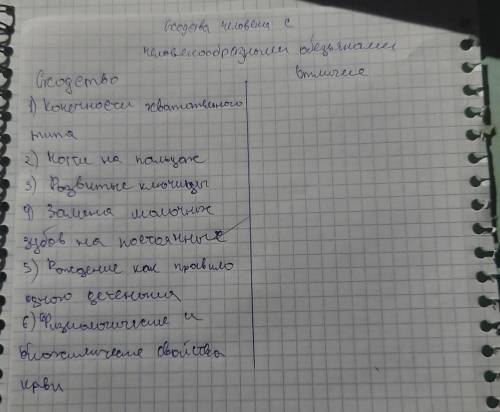 Сходства человека с
человекообразными обезьянами
Сходство
Отличие
1) Конечности хватательного
типа
2) Ногти на пальцах
3) Развитые ключицы
4) Замена молочных
зубов на постоянные
5) Рождение как правило
одного детёныша
6) Физиологические и
биохимические свойства
крови